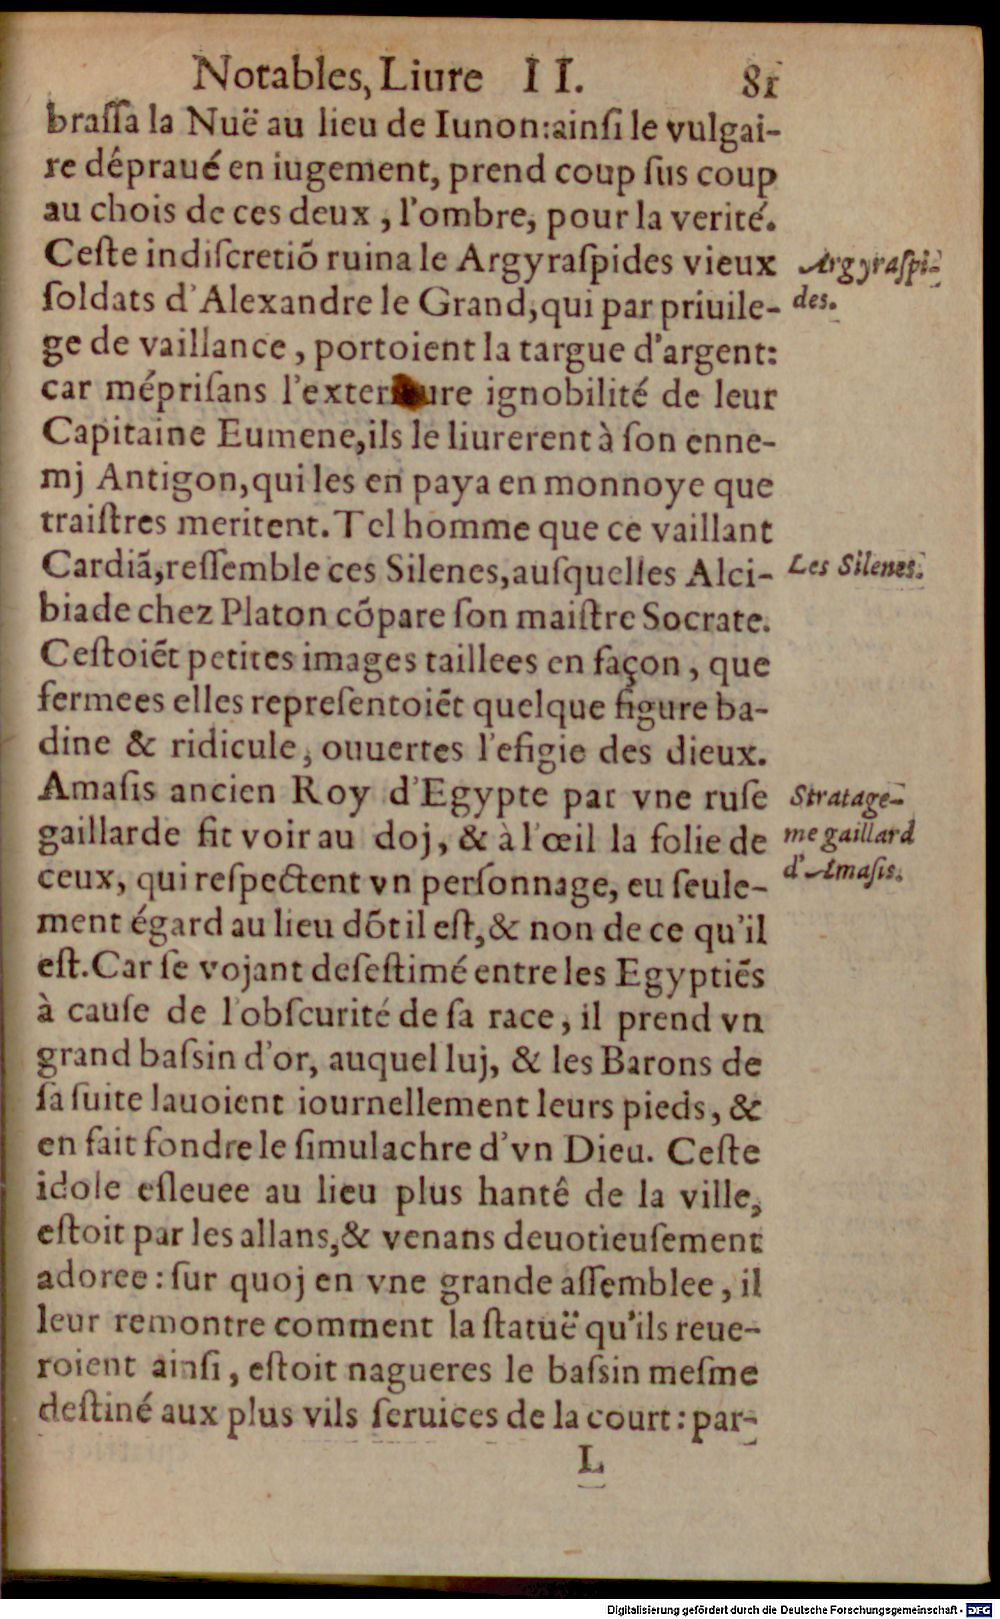 Notables, Liure II. 81
braſſa la Nuë au lieu de Iunon:ainſi le vulgai-
re dépraué en iugement, prend coup ſus coup
au chois de ces deux , l'ombre, pour la verité.
Ceſte indiſcretiõ ruina le Argyraſpides vieux
Argyraſpi-
ſoldats d'Alexandre le Grand,qui par priuile-
des.
ge de vaillance , portoient la targue d'argent:
car mépriſans l'exterieure ignobilité de leur
Capitaine Eumene,ils le liurerent à ſon enne-
mj Antigon,qui les en paya en monnoye que
traiſtres meritent. Tel homme que ce vaillant
Cardiã,reſſemble ces Silenes,auſquelles Alci-
Les Silenes.
biade chez Platon cõpare ſon maiſtre Socrate.
Ceſtoiẽt petites images taillees en façon , que
fermees elles repreſentoiẽt quelque figure ba-
dine & ridicule, ouuertes l'efigie des dieux.
Amaſis ancien Roy d'Egypte par vne ruſe
Stratage-
gaillarde fit voir au doj, & à l'œil la folie de
me gaillard
ceux, qui reſpectent vn perſonnage, eu ſeule-
d'Amaſis.
ment égard au lieu dõt il eſt,& non de ce qu'il
eſt. Car ſe vojant deſeſtimé entre les Egyptiẽs
à cauſe de l'obſcurité de ſa race, il prend vn
grand baſsin d'or, auquel luj, & les Barons de
ſa ſuite lauoient iournellement leurs pieds, &
en fait fondre le ſimulachre d'vn Dieu. Ceſte
idole eſleuee au lieu plus hantê de la ville,
eſtoit par les allans,& venans deuotieuſement
adoree : ſur quoj en vne grande aſſemblee, il
leur remontre comment la ſtatuë qu'ils reue-
roient ainſi , eſtoit nagueres le baſsin meſme
deſtiné aux plus vils ſeruices de la court : par-
L
Digitalisierung gefördert durch die Deutsche Forschungsgemeinschaft - DFG